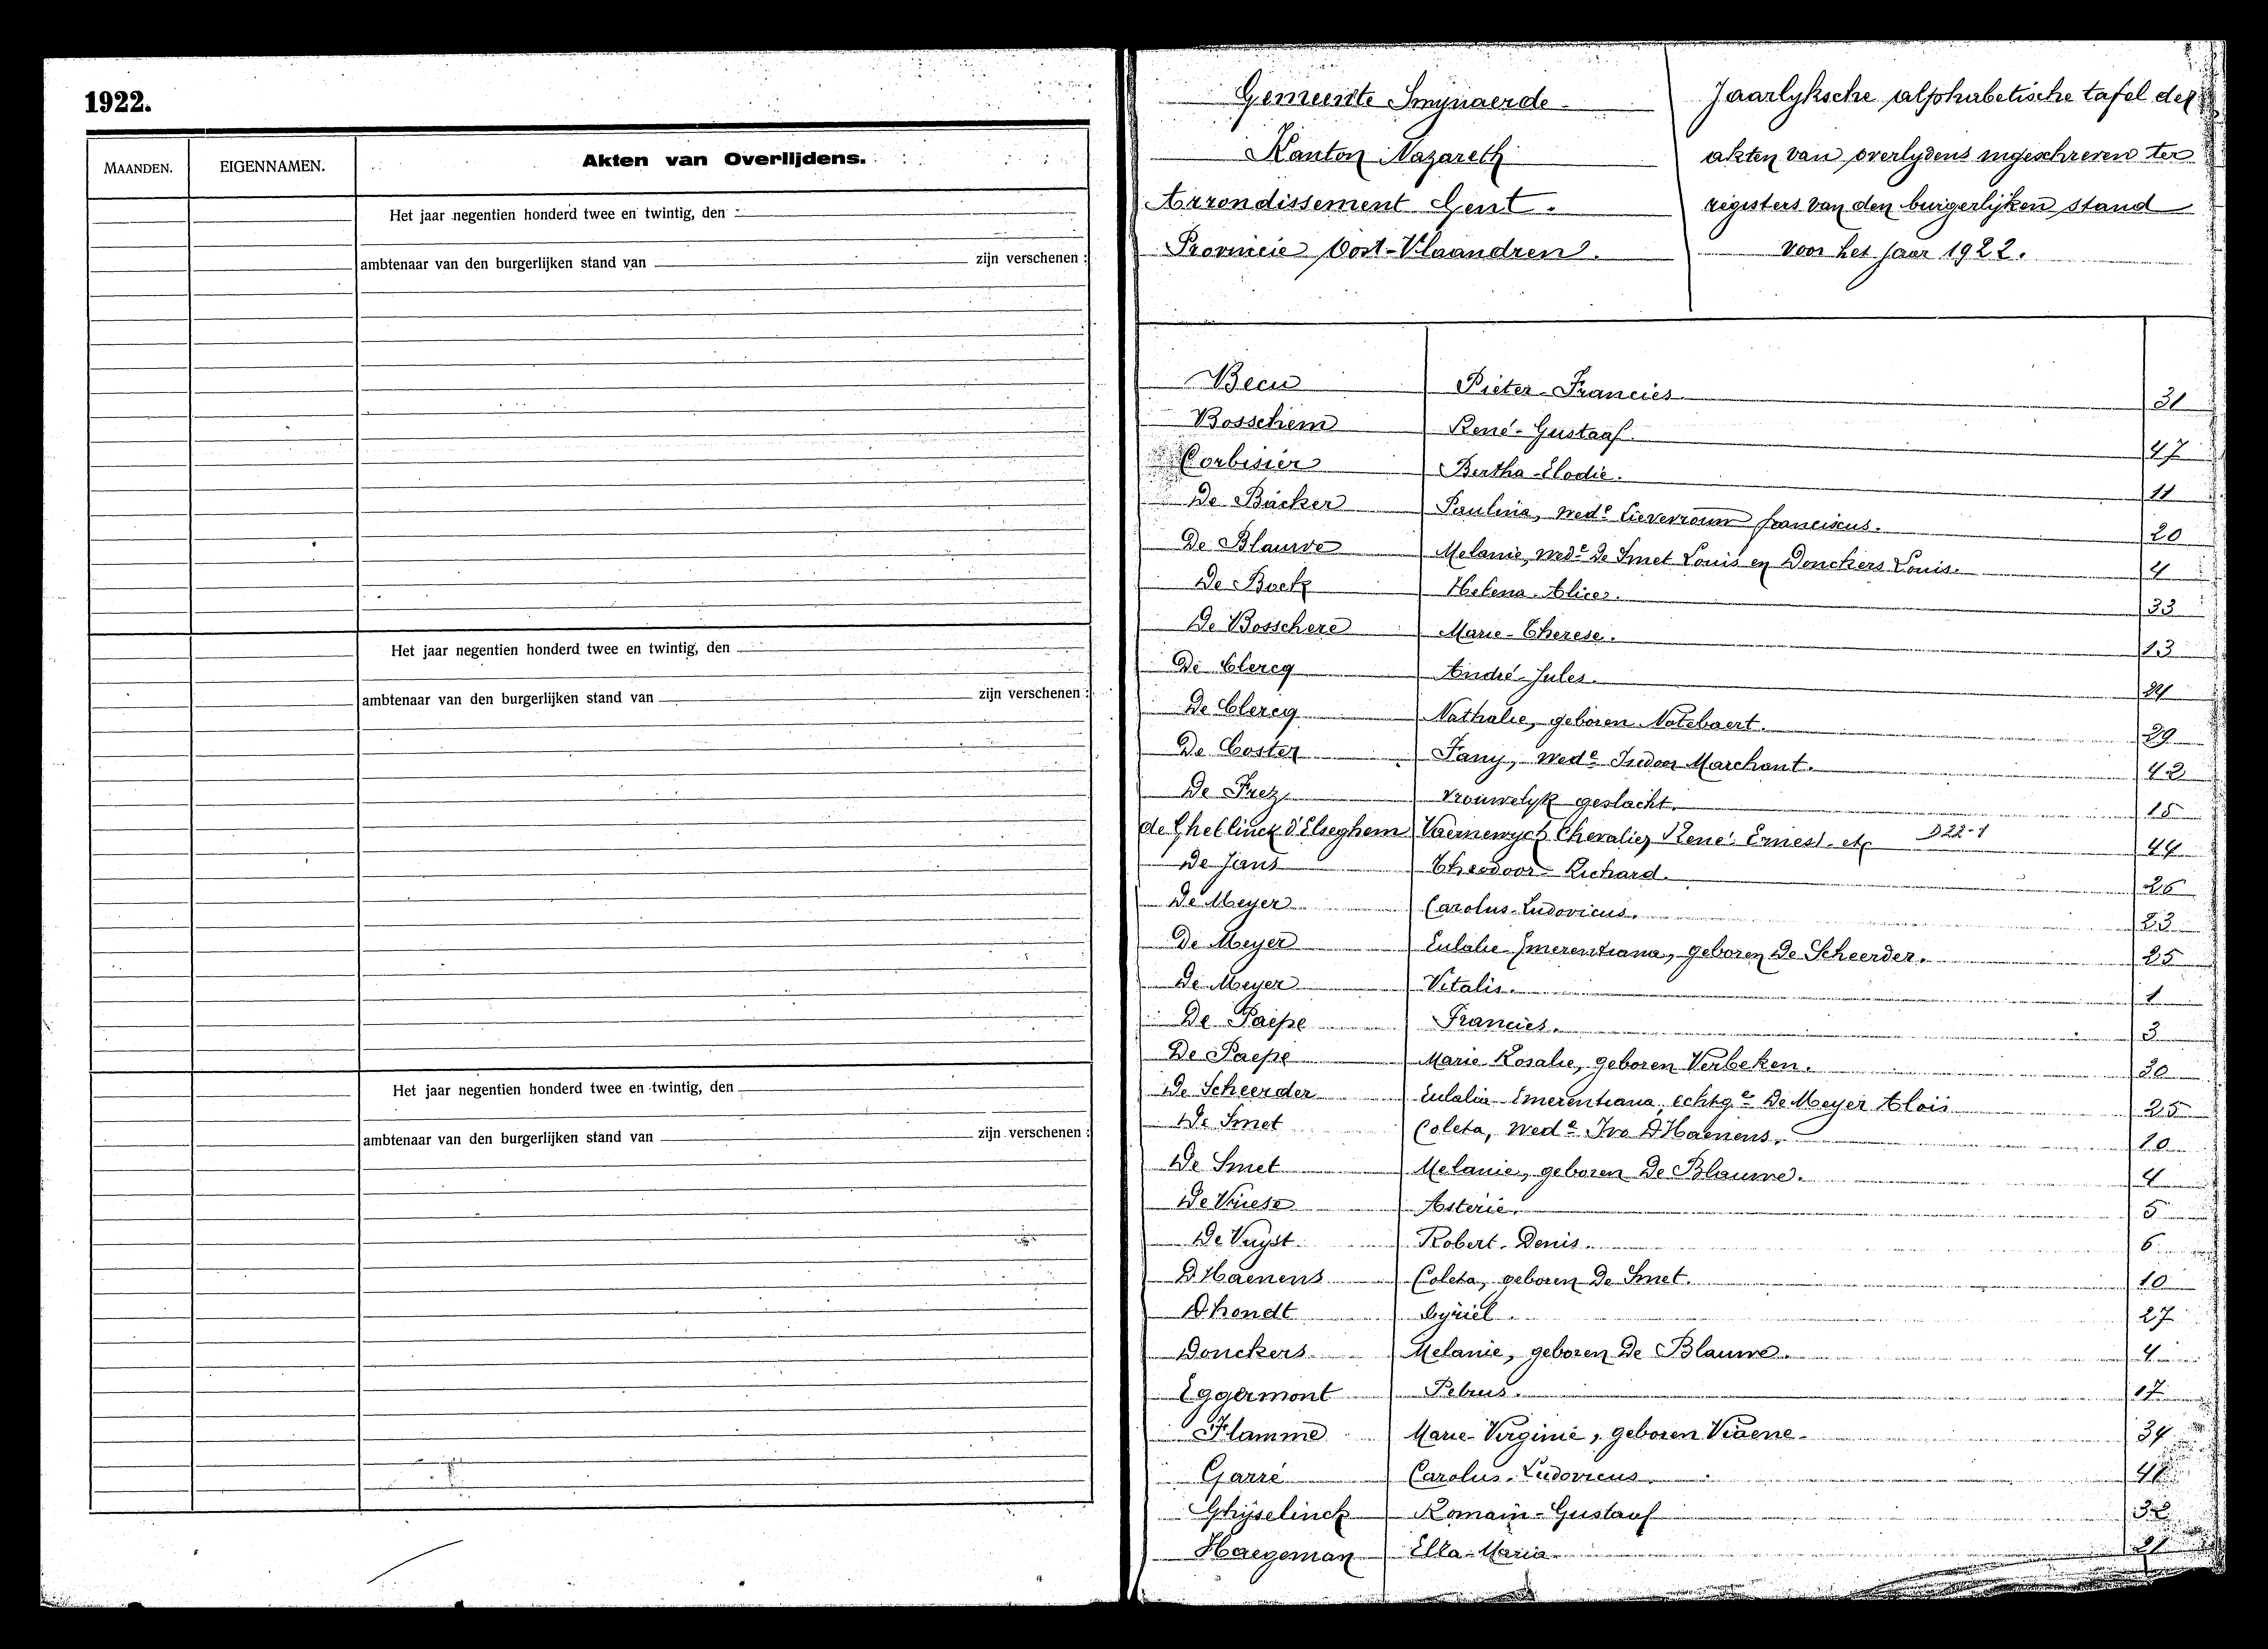 1922.
MAANDEN. EIGENNAMEN. Akten van Overlijdens.
Het jaar negentien honderd twee en twintig, den
ambtenaar van den burgerlijken stand van zijn verschenen :
Het jaar negentien honderd twee en twintig, den
ambtenaar van den burgerlijken stand van zijn verschenen :
Het jaar negentien honderd twee en twintig, den
ambtenaar van den burgerlijken stand van zijn verschenen :
Gemeente Smynaerde
Kanton Nazareth
Arrondissement Gent.
Provincie Oost-Vlaandren.
Jaarlyksche alphabetische tafel der
akten van overlydens ingeschreven ter
registers van den burgerlijken stand
voor het jaar 1922.
Becu Pieter-Francies 31
Bosschem René-Gustaaf 47
Corbisier Bertha-Elodie. 11
De Backer Paulina, wede Lieverouw franciscus. 20
De Blauwe Melanie, wede De Smet Louis en Donckers Louis. 4
De Bock Helena-Alice. 33
De Bosschere Marie-Therese. 13
De Clercq André-Jules.
De Clercq Nathalie, geboren Notebaert. 29
De Coster Fany, wede Isidoor Marchant. 42
De Prez Vrouwelyk geslacht. 15
de Ghellinck d'Elseghem Vaernewyck Chevalier René Ernest etc D22-1 44
De Jans Theodoor-Richard. 26
De Meyer Carolus-Ludovicus. 23
De Meyer Eulalie Emerentiana, geboren De Scheerder. 25
De Meyer Vitalis. 1
De Paepe Francies. 3
De Paepe Marie Rosalie, geboren Verbeken. 30
De Scheerder Eulalia Emerentiana, echtge De Meyer Aloïs 25
De Smet Coleta, wede Ivo D'Haenens. 10
De Smet Melanie, geboren De Blauwe. 4
De Vriese Asterie. 5
De Vuyst Robert-Denis. 6
D'Haenens Coleta, geboren De Smet. 10
D'hondt Cyriel. 27
Donckers Melanie, geboren De Blauwe. 4
Eggermont Petrus. 17
Flamme Marie-Virginie, geboren Viaene. 34
Garré Carolus-Ludovicus
Ghyselinck Romain-Gustaaf
Haegeman Ella-Maria 21